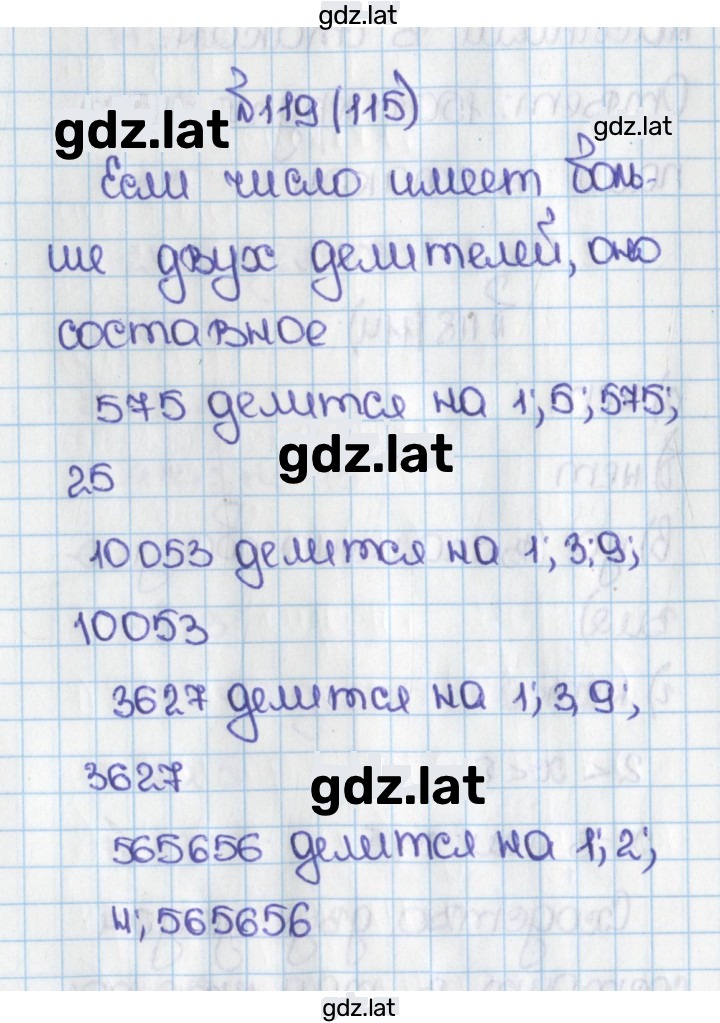 gdz.lat
№119 (115)
gdz.lat
gdz.lat
Если число имеет боль-
ше двух делителей, оно
составное
575 делится на 1; 5; 575;
gdz.lat
25
10053 делится на 1; 3; 9;
10053
3627 делится на 1; 3, 9;
3627
gdz.lat
565656 делится на 1; 2;
4; 565656
gdz.lat